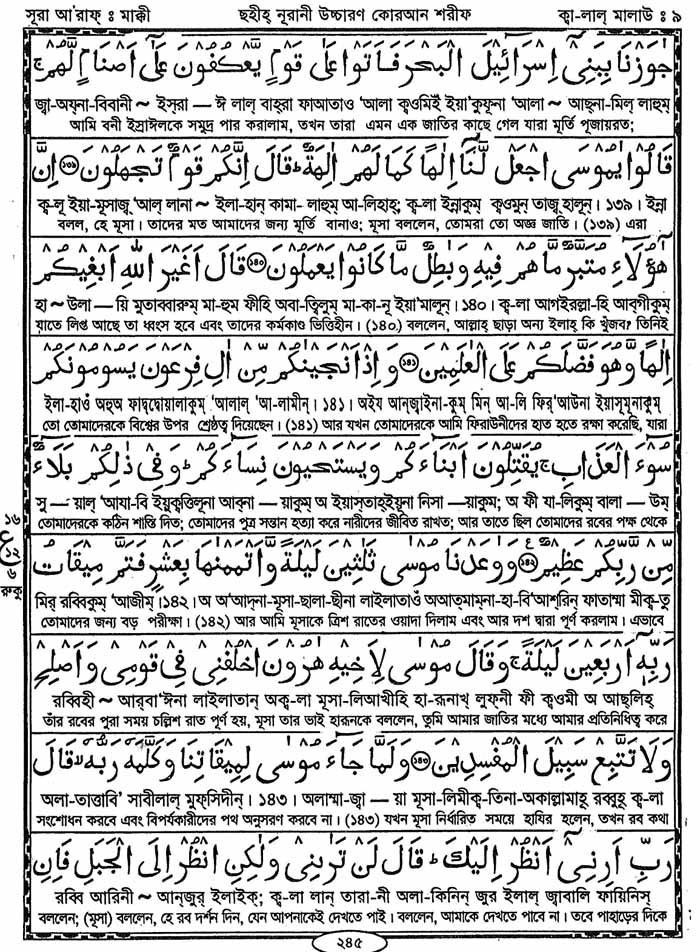 সূরা আ'রাফ্ ঃ মাক্কী ছহীহ্ নূরানী উচ্চারণ কোরআন শরীফ ক্বা-লাল্ মালাউ ঃ ৯
جٰوَزْنَا بِبَنِیْۤ اِسْرَآئِیْلَ الْبَحْرَ فَاَتَوْا عَلٰی قَوْمٍ یَّعْكُفُوْنَ عَلٰۤی اَصْنَامٍ لَّهُمْ ۚ
জ্বা-অয্না-বিবানী ~ ইস্রা — ঈ লাল্ বাহ্রা ফাআতাও 'আলা ক্বওমিইঁ ইয়া'কুফূনা 'আলা ~ আছ্না-মিল্ লাহুম্
আমি বনী ইস্রাঈলকে সমুদ্র পার করালাম, তখন তারা এমন এক জাতির কাছে গেল যারা মূর্তি পূজায়রত;
قَالُوْا یٰمُوْسَی اجْعَلْ لَّنَاۤ اِلٰهًا كَمَا لَهُمْ اٰلِهَةٌ ؕ قَالَ اِنَّكُمْ قَوْمٌ تَجْهَلُوْنَ ﴿১৩৯﴾ اِنَّ
ক্ব-লূ ইয়া-মূসাজ্ব্'আল্ লানা ~ ইলা-হান্ কামা- লাহুম্ আ-লিহাহ্; ক্ব-লা ইন্নাকুম্ ক্বওমুন্ তাজ্ব্হালূন্। ১৩৯। ইন্না
বলল, হে মূসা। তাদের মত আমাদের জন্য মূর্তি বানাও; মূসা বললেন, তোমরা তো অজ্ঞ জাতি। (১৩৯) এরা
هٰۤؤُلَآءِ مُتَبَّرٌ مَّا هُمْ فِیْهِ وَبٰطِلٌ مَّا كَانُوْا یَعْمَلُوْنَ ﴿১৪০﴾ قَالَ اَغَیْرَ اللّٰهِ اَبْغِیْكُمْ
হা ~ উলা — য়ি মুতাব্বারুম্ মা-হুম ফীহি অবা-ত্বিলুম্ মা-কা-নূ ইয়া'মালূন্। ১৪০। ক্ব-লা আগইরল্লা-হি আব্গীকুম্
যাতে লিপ্ত আছে তা ধ্বংস হবে এবং তাদের কর্মকাণ্ড ভিত্তিহীন। (১৪০) বললেন, আল্লাহ্ ছাড়া অন্য ইলাহ্ কি খুঁজব? তিনিই
اِلٰهًا وَّهُوَ فَضَّلَكُمْ عَلَی الْعٰلَمِیْنَ ﴿১৪১﴾ وَاِذْ اَنْجَیْنٰكُمْ مِّنْ اٰلِ فِرْعَوْنَ یَسُوْمُوْنَكُمْ
ইলা-হাওঁ অহুঅ ফাদ্দ্বোয়ালাকুম্ 'আলাল্ 'আ-লামীন্। ১৪১। অইয আন্জ্বাইনা-কুম্ মিন্ আ-লি ফির্'আউনা ইয়াসূমূনাকুম্
তো তোমাদেরকে বিশ্বের উপর শ্রেষ্ঠত্ব দিয়েছেন। (১৪১) আর যখন তোমাদেরকে আমি ফিরাউনীদের হাত হতে রক্ষা করেছি, যারা
سُوْٓءَ الْعَذَابِ ۚ یُقَتِّلُوْنَ اَبْنَآءَكُمْ وَیَسْتَحْیُوْنَ نِسَآءَكُمْ ؕ وَفِیْ ذٰلِكُمْ بَلَآءٌ
সূ — য়াল্ 'আযা-বি ইয়ুক্বত্তিলূনা আব্না — য়াকুম্ অ ইয়াস্তাহ্ইয়ূনা নিসা —য়াকুম; অ ফী যা-লিকুম্ বালা — উম্
তোমাদেরকে কঠিন শাস্তি দিত; তোমাদের পুত্র সন্তান হত্যা করে নারীদের জীবিত রাখত; আর তাতে ছিল তোমাদের রবের পক্ষ থেকে
১৬
ع
১২
৬
রুকু
مِّنْ رَّبِّكُمْ عَظِیْمٌ ﴿১৪২﴾ وَوٰعَدْنَا مُوْسٰی ثَلٰثِیْنَ لَیْلَةً وَّاَتْمَمْنٰهَا بِعَشْرٍ فَتَمَّ مِیْقَاتُ
মির্ রব্বিকুম্ 'আজীম্। ১৪২। অ অ'আদ্না-মূসা-ছালা-ছীনা লাইলাতাওঁ অআত্মাম্না-হা-বি'আশ্রিন্ ফাতাম্মা মীক্ব-তু
তোমাদের জন্য বড় পরীক্ষা। (১৪২) আর আমি মূসাকে ত্রিশ রাতের ওয়াদা দিলাম এবং আর দশ দ্বারা পূর্ণ করলাম। এভাবে
رَبِّهٖۤ اَرْبَعِیْنَ لَیْلَةً ۚ وَقَالَ مُوْسٰی لِاَخِیْهِ هٰرُوْنَ اخْلُفْنِیْ فِیْ قَوْمِیْ وَاَصْلِحْ
রব্বিহী ~ আর্বা'ঈনা লাইলাতান্ অক্ব-লা মূসা-লিআখীহি হা-রূনাখ্ লুফ্নী ফী ক্বওমী অ আছ্লিহ্
তাঁর রবের পুরা সময় চল্লিশ রাত পূর্ণ হয়, মূসা তার ভাই হারূনকে বললেন, তুমি আমার জাতির মধ্যে আমার প্রতিনিধিত্ব করে
وَلَا تَتَّبِعْ سَبِیْلَ الْمُفْسِدِیْنَ ﴿১৪৩﴾ وَلَمَّا جَآءَ مُوْسٰی لِمِیْقَاتِنَا وَكَلَّمَهٗ رَبُّهٗ ۙ قَالَ
অলা-তাত্তাবি' সাবীলাল্ মুফ্সিদীন্। ১৪৩। অলাম্মা-জ্বা — য়া মূসা-লিমীক্ব-তিনা-অকাল্লামাহূ রব্বুহূ ক্ব-লা
সংশোধন করবে এবং বিপর্যকারীদের পথ অনুসরণ করবে না। (১৪৩) যখন মূসা নির্ধারিত সময়ে হাযির হলেন, তখন রব কথা
رَبِّ اَرِنِیْۤ اَنْظُرْ اِلَیْكَ ؕ قَالَ لَنْ تَرٰىنِیْ وَلٰكِنِ انْظُرْ اِلَی الْجَبَلِ فَاِنِ
রব্বি আরিনী ~ আন্জুর্ ইলাইক্; ক্ব-লা লান্ তারা-নী অলা-কিনিন্ জুর ইলাল্ জ্বাবালি ফায়িনিস্
বললেন; (মূসা) বললেন, হে রব দর্শন দিন, যেন আপনাকেই দেখতে পাই। বললেন, আমাকে দেখতে পাবে না। তবে পাহাড়ের দিকে
২৪৫